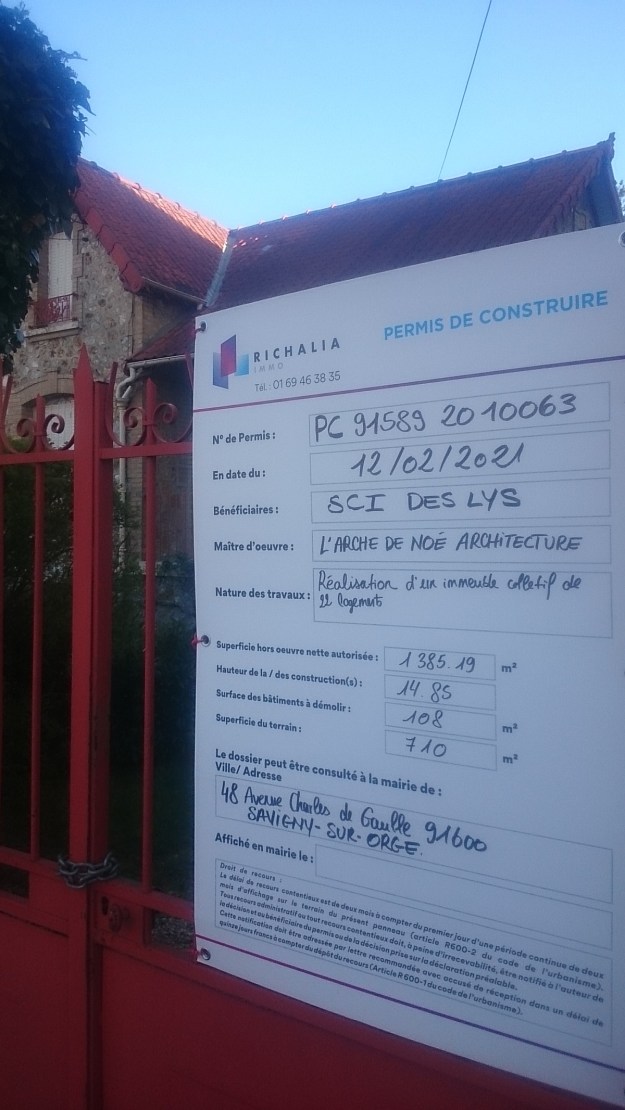 PERMIS DE CONSTRUIRE
RICHALIA
IMMO
Tél. : 01 69 46 38 35
N° de Permis : PC 91589 20 10063
En date du : 12/02/2021
Bénéficiaires : SCI DES LYS
Maître d'oeuvre : L'ARCHE DE NOÉ ARCHITECTURE
Nature des travaux : Réalisation d'un immeuble colletif de
22 logements
Superficie hors oeuvre nette autorisée : 1 385.19 m²
Hauteur de la / des construction(s) : 14.85
Surface des bâtiments à démolir : 108 m²
Superficie du terrain : 710 m²
Le dossier peut être consulté à la mairie de :
Ville/ Adresse
48 Avenue Charles de Gaulle 91600
SAVIGNY-SUR-ORGE.
Affiché en mairie le :
Droit de recours :
Le délai de recours contentieux est de deux mois à compter du premier jour d'une période continue de deux
mois d'affichage sur le terrain du présent panneau (article R600-2 du code de l'urbanisme).
Tous recours administratif ou tout recours contentieux doit, à peine d'irrecevabilité, être notifié à l'auteur de
la décision et au bénéficiaire du permis ou de la décision prise sur la déclaration préalable.
Cette notification doit être adressée par lettre recommandée avec accusé de réception dans un délai de
quinze jours francs à compter du dépôt du recours (Article R600-1 du code de l'urbanisme).